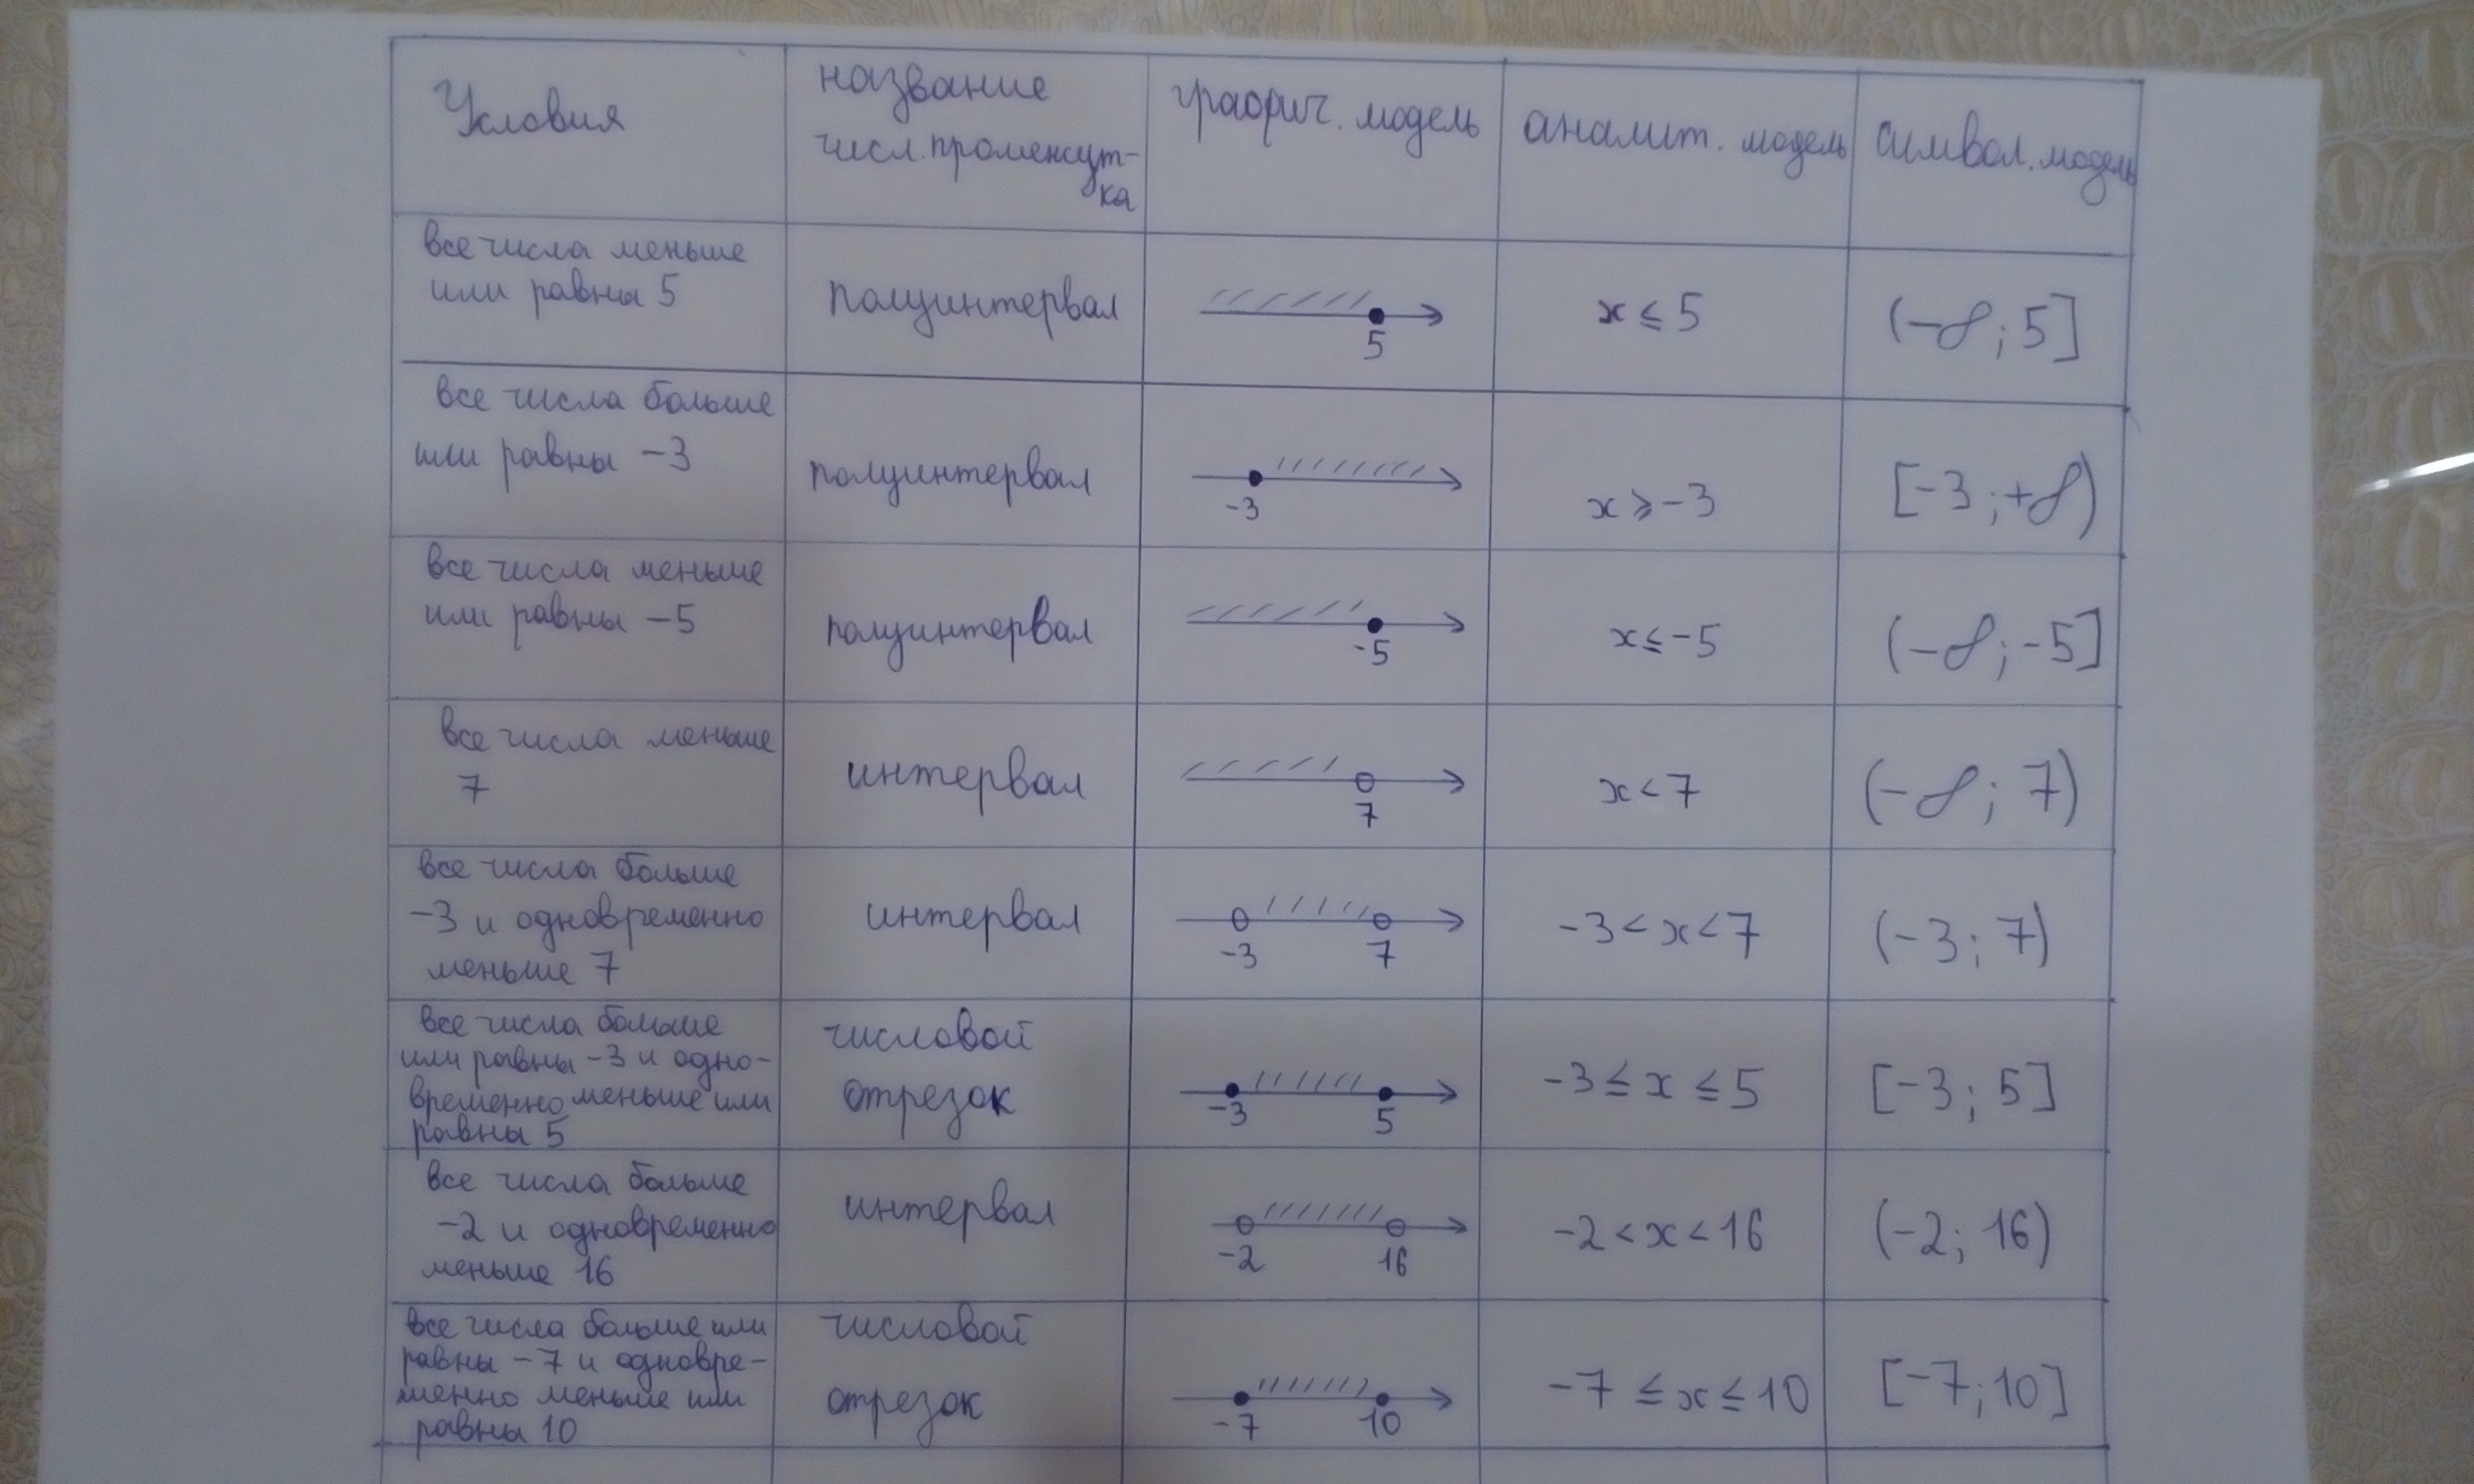 Условия
название
числ. промежут-
ка
графич. модель
аналит. модель
символ. модель
все числа меньше
или равны 5
полуинтервал
5
x ≤ 5
(-∞; 5]
все числа больше
или равны -3
полуинтервал
-3
x ⩾ -3
[-3; +∞)
все числа меньше
или равны -5
полуинтервал
-5
x ≤ -5
(-∞; -5]
все числа меньше
7
интервал
7
x < 7
(-∞; 7)
все числа больше
-3 и одновременно
меньше 7
интервал
-3 7
-3 < x < 7
(-3; 7)
все числа больше
или равны -3 и одно-
временно меньше или
равны 5
числовой
отрезок
-3 5
-3 ≤ x ≤ 5
[-3; 5]
все числа больше
-2 и одновременно
меньше 16
интервал
-2 16
-2 < x < 16
(-2; 16)
все числа больше или
равны -7 и одновре-
менно меньше или
равны 10
числовой
отрезок
-7 10
-7 ≤ x ≤ 10
[-7; 10]